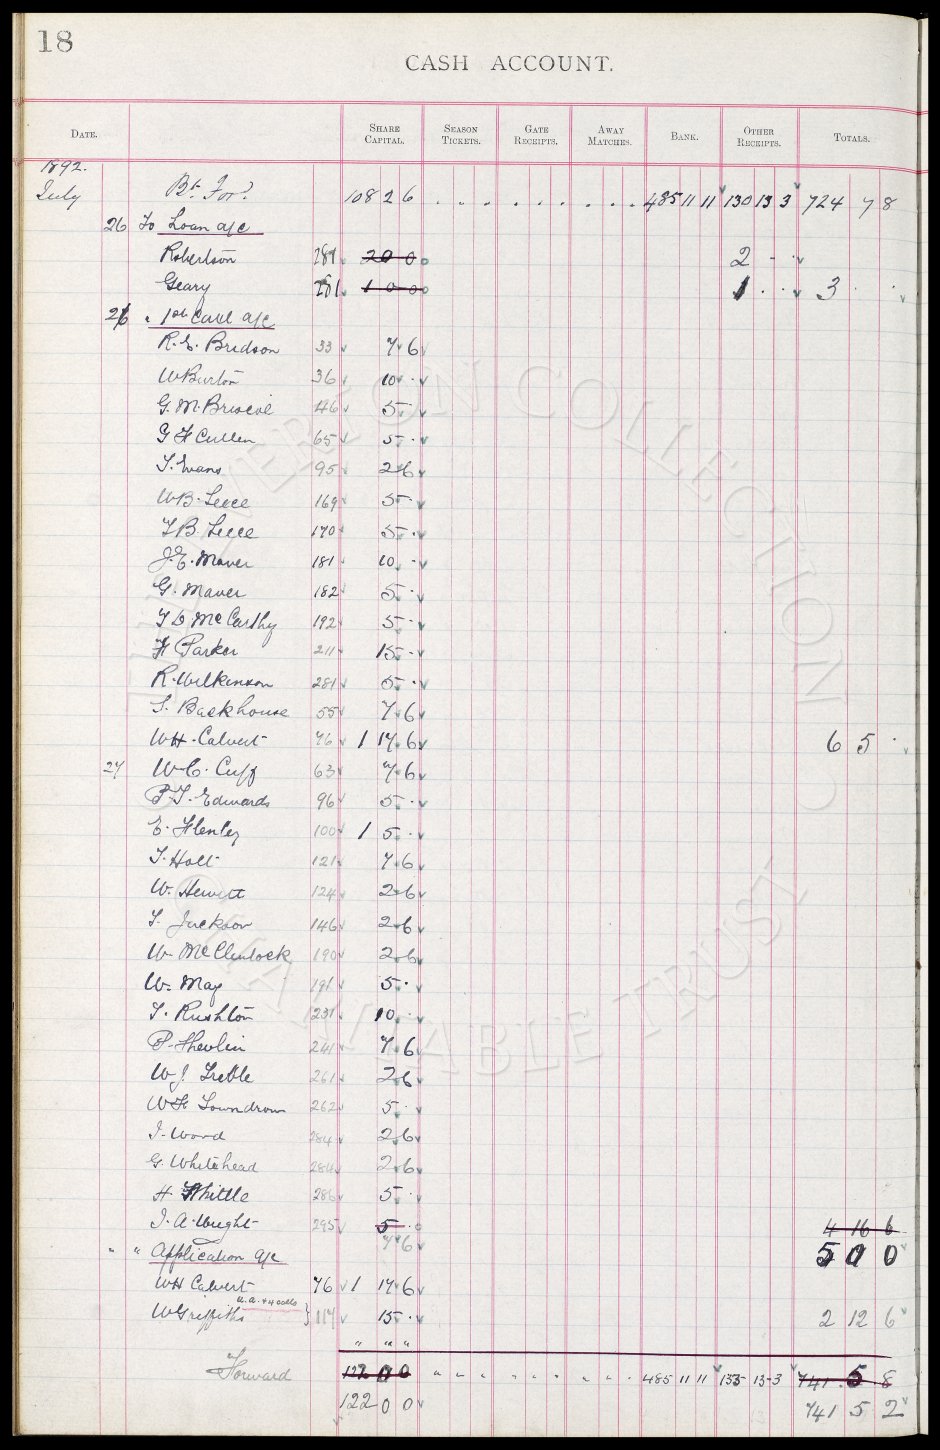 18
CASH ACCOUNT.
DATE. SHARE CAPITAL. SEASON TICKETS. GATE RECEIPTS. AWAY MATCHES. BANK. OTHER RECEIPTS. TOTALS.
1892.
July Bt. Ford 108 2 6 485 11 11 130 13 3 724 7 8
26 To Loan a/c
Robertson 281 2 0 0 2 - -
Geary 1 0 0 1 . . 3 . .
26 " 1st Call a/c
R. E. Bridson 33 7 6
W Burton 36 10 .
G. M. Briscoe 46 5 .
G H Cullen 65 5 .
T. Evans 95 2 6
W B. Leece 169 5 .
T B. Leece 170 5 .
J. E. Maver 181 10 .
G. Maver 182 5 .
T D McCarthy 192 5 .
H Parker 211 15 .
R. Wilkinson 281 5 .
S. Backhouse 55 7 6
W H. Calvert 76 1 17 6 6 5 .
27 W. C. Cuff 63 7 6
P. T. Edwards 96 5 .
E. Flenley 100 1 5 .
T. Holt 121 7 6
W. Hewitt 124 2 6
T. Jackson 146 2 6
W. McClintock 190 2 6
W. May 191 5 .
T. Rushton 231 10 .
P. Shevlin 241 7 6
W. J. Treble 261 2 6
W H Lowndrow 262 5 .
J. Wood 284 2 6
G. Whitehead 284 2 6
H Whittle 286 5 .
J. A. Wright 295 5 . 4 16 6
7 6
" " Application a/c 5 0 0
W H Calvert 76 1 17 6
a. a. + 4 calls
W Griffiths } 117 15 . 2 12 6
" " "
Forward 122 0 0 " " " " " " " " " 485 11 11 133 13 3 741 5 8
122 0 0 741 5 2
EVERTON COLLECTION
CHARITABLE TRUST